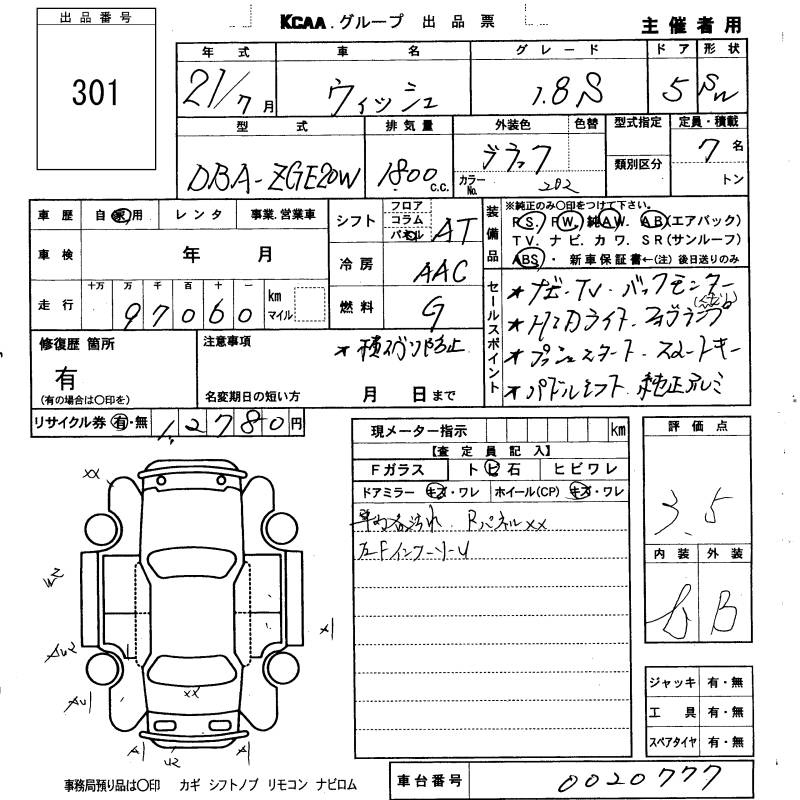 出品番号
KCAA.グループ 出品票
主催者用
301
年式 車名 グレード ドア 形状
21/7月 ウィッシュ 1.8S 5 SW
型式 排気量 外装色 色替 型式指定 定員・積載
DBA-ZGE20W 1800 c.c. ブラック 7名
カラーNo. 202 類別区分 トン
車歴 自家用 レンタ 事業.営業車
車検 年 月
走行 十万 万 千 百 十 一 km マイル
97060
シフト フロア コラム パネル AT
冷房 AAC
燃料 G
装備品
※純正のみ〇印をつけて下さい。
P.S. P.W. 純A.W. A.B(エアバック)
T V. ナビ. カワ. S R(サンルーフ)
ABS・ 新車保証書←(注) 後日送りのみ
セールスポイント
★ナビ・TV・バックモニター
★HIDライト・フォグランプ
★プッシュスタート・スマートキー
★パドルシフト・純正アルミ
修復歴 箇所
有
(有の場合は〇印を)
注意事項
★横スベリ防止
名変期日の短い方 月 日まで
リサイクル券 有・無 12780円
現メーター指示 km
【査定員記入】
Fガラス トビ石 ヒビワレ
ドアミラー キズ・ワレ ホイール(CP) キズ・ワレ
Rパネルxx
左Fインナー
評価点
3.5
内装 外装
B
ジャッキ 有・無
工具 有・無
スペアタイヤ 有・無
xx
W2
AU2
AU1
A
U2
A
A1
xx
事務局預り品は〇印 カギ シフトノブ リモコン ナビロム
車台番号 0020777